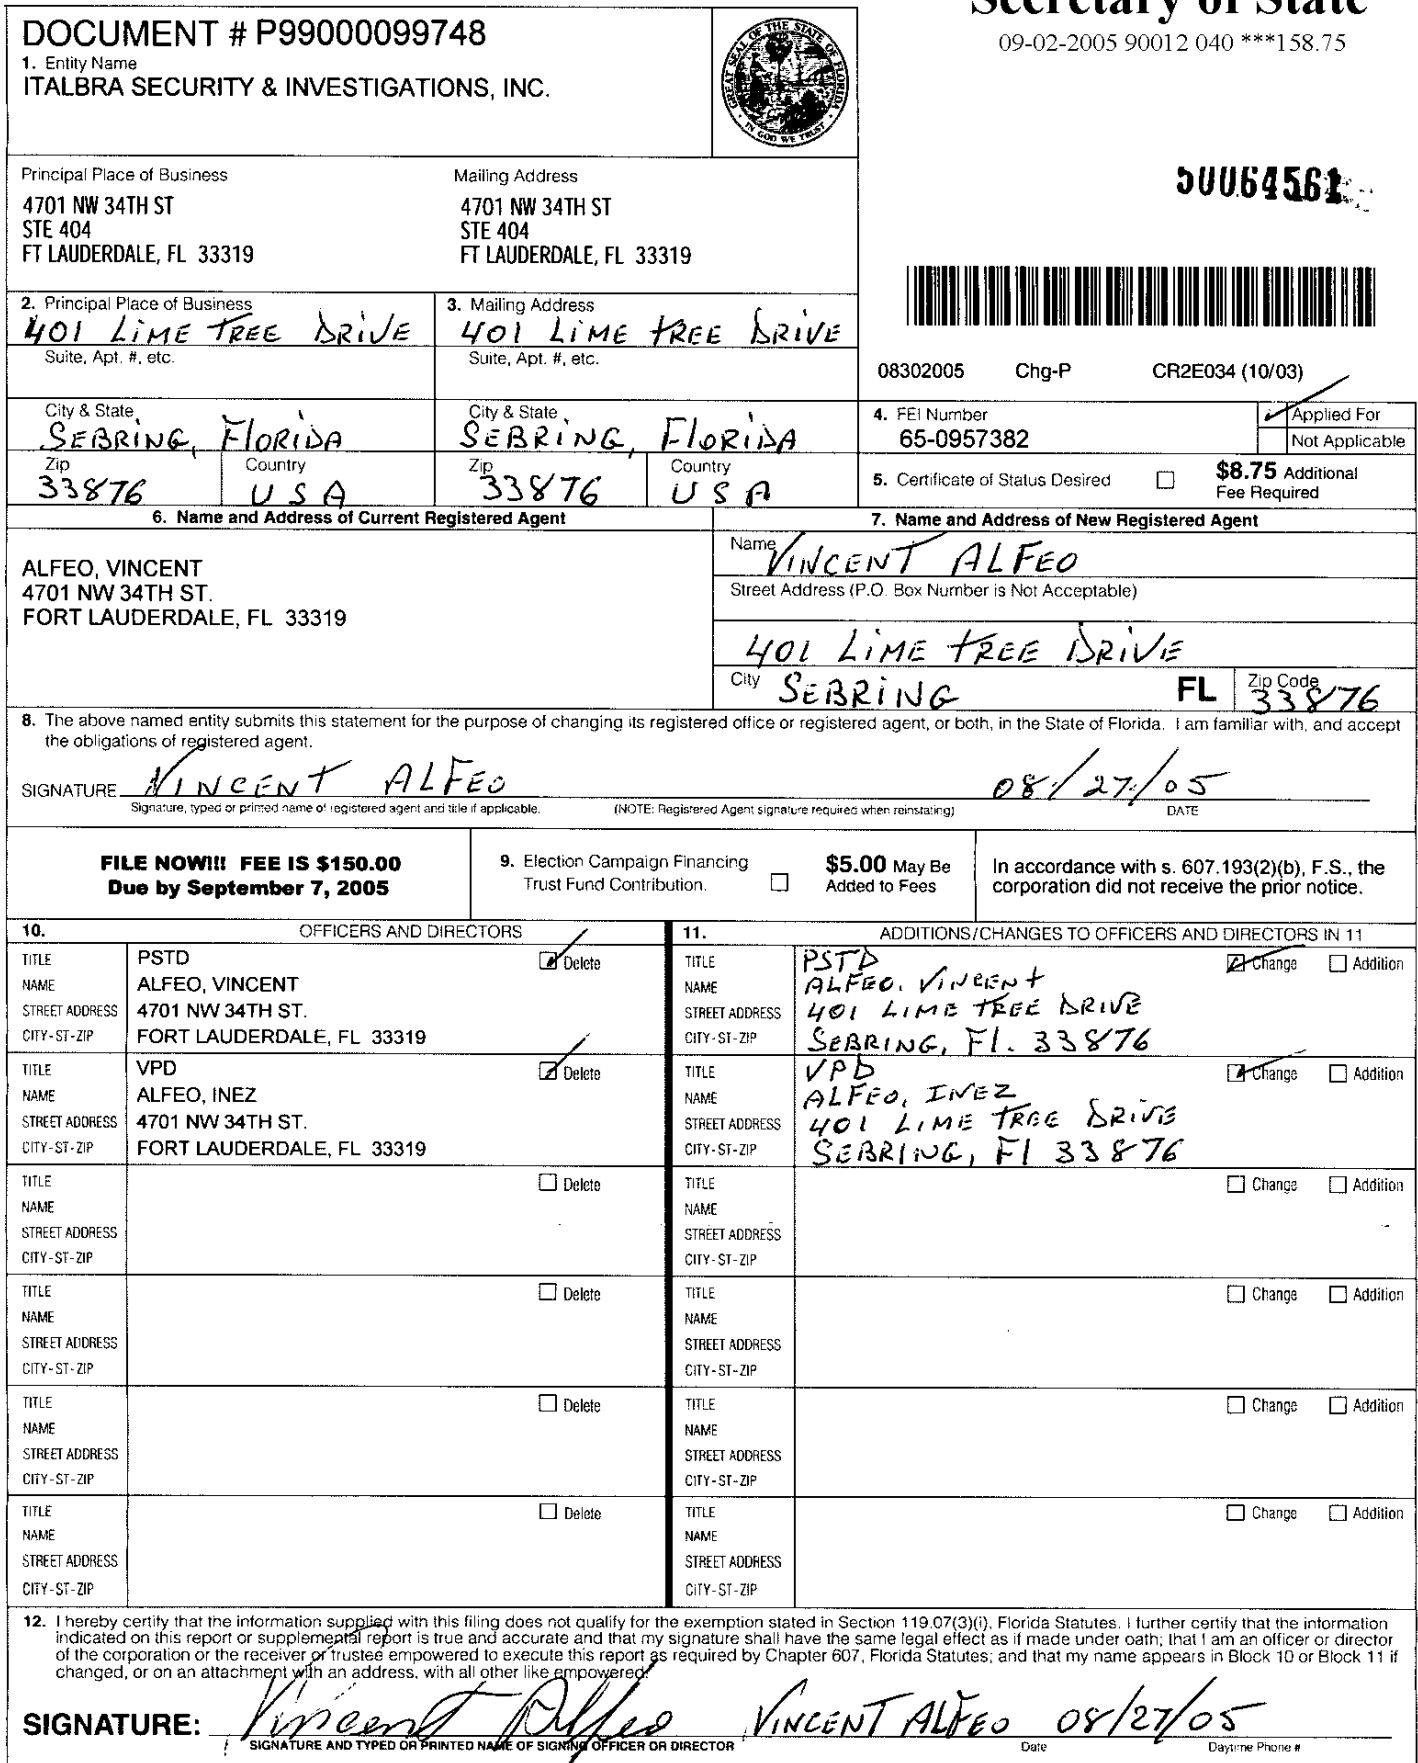 Secretary of State
DOCUMENT # P99000099748
09-02-2005 90012 040 ***158.75
1. Entity Name
ITALBRA SECURITY & INVESTIGATIONS, INC.
GREAT SEAL OF THE STATE OF FLORIDA
IN GOD WE TRUST
50064561
Principal Place of Business
4701 NW 34TH ST
STE 404
FT LAUDERDALE, FL 33319
Mailing Address
4701 NW 34TH ST
STE 404
FT LAUDERDALE, FL 33319
2. Principal Place of Business
401 LiME TREE DRiVE
Suite, Apt. #, etc.
City & State
SEBRiNG, FloRiDA
Zip
33876
Country
USA
3. Mailing Address
401 LiME TREE DRiVE
Suite, Apt. #, etc.
City & State
SEBRiNG, FloRiDA
Zip
33876
Country
USA
08302005 Chg-P CR2E034 (10/03)
4. FEI Number
65-0957382
Applied For
Not Applicable
5. Certificate of Status Desired
$8.75 Additional
Fee Required
6. Name and Address of Current Registered Agent
ALFEO, VINCENT
4701 NW 34TH ST.
FORT LAUDERDALE, FL 33319
7. Name and Address of New Registered Agent
Name VINCENT ALFEO
Street Address (P.O. Box Number is Not Acceptable)
401 LiME TREE DRiVE
City SEBRiNG FL Zip Code 33876
8. The above named entity submits this statement for the purpose of changing its registered office or registered agent, or both, in the State of Florida. I am familiar with, and accept
the obligations of registered agent.
SIGNATURE VINCENT ALFEO 08/27/05
Signature, typed or printed name of registered agent and title if applicable. (NOTE: Registered Agent signature required when reinstating) DATE
FILE NOW!!! FEE IS $150.00
Due by September 7, 2005
9. Election Campaign Financing
Trust Fund Contribution.
$5.00 May Be
Added to Fees
In accordance with s. 607.193(2)(b), F.S., the
corporation did not receive the prior notice.
10. OFFICERS AND DIRECTORS
TITLE PSTD Delete
NAME ALFEO, VINCENT
STREET ADDRESS 4701 NW 34TH ST.
CITY-ST-ZIP FORT LAUDERDALE, FL 33319
TITLE VPD Delete
NAME ALFEO, INEZ
STREET ADDRESS 4701 NW 34TH ST.
CITY-ST-ZIP FORT LAUDERDALE, FL 33319
TITLE Delete
NAME
STREET ADDRESS
CITY-ST-ZIP
TITLE Delete
NAME
STREET ADDRESS
CITY-ST-ZIP
TITLE Delete
NAME
STREET ADDRESS
CITY-ST-ZIP
TITLE Delete
NAME
STREET ADDRESS
CITY-ST-ZIP
11. ADDITIONS/CHANGES TO OFFICERS AND DIRECTORS IN 11
TITLE PSTD Change Addition
NAME ALFEO, VINCENT
STREET ADDRESS 401 LIME TREE DRIVE
CITY-ST-ZIP SEBRING, Fl. 33876
TITLE VPD Change Addition
NAME ALFEO, INEZ
STREET ADDRESS 401 LIME TREE DRIVE
CITY-ST-ZIP SEBRING, Fl 33876
TITLE Change Addition
NAME
STREET ADDRESS
CITY-ST-ZIP
TITLE Change Addition
NAME
STREET ADDRESS
CITY-ST-ZIP
TITLE Change Addition
NAME
STREET ADDRESS
CITY-ST-ZIP
TITLE Change Addition
NAME
STREET ADDRESS
CITY-ST-ZIP
12. I hereby certify that the information supplied with this filing does not qualify for the exemption stated in Section 119.07(3)(i), Florida Statutes. I further certify that the information
indicated on this report or supplemental report is true and accurate and that my signature shall have the same legal effect as if made under oath; that I am an officer or director
of the corporation or the receiver or trustee empowered to execute this report as required by Chapter 607, Florida Statutes; and that my name appears in Block 10 or Block 11 if
changed, or on an attachment with an address, with all other like empowered.
SIGNATURE: Vincent Alfeo VINCENT ALFEO 08/27/05
SIGNATURE AND TYPED OR PRINTED NAME OF SIGNING OFFICER OR DIRECTOR Date Daytime Phone #